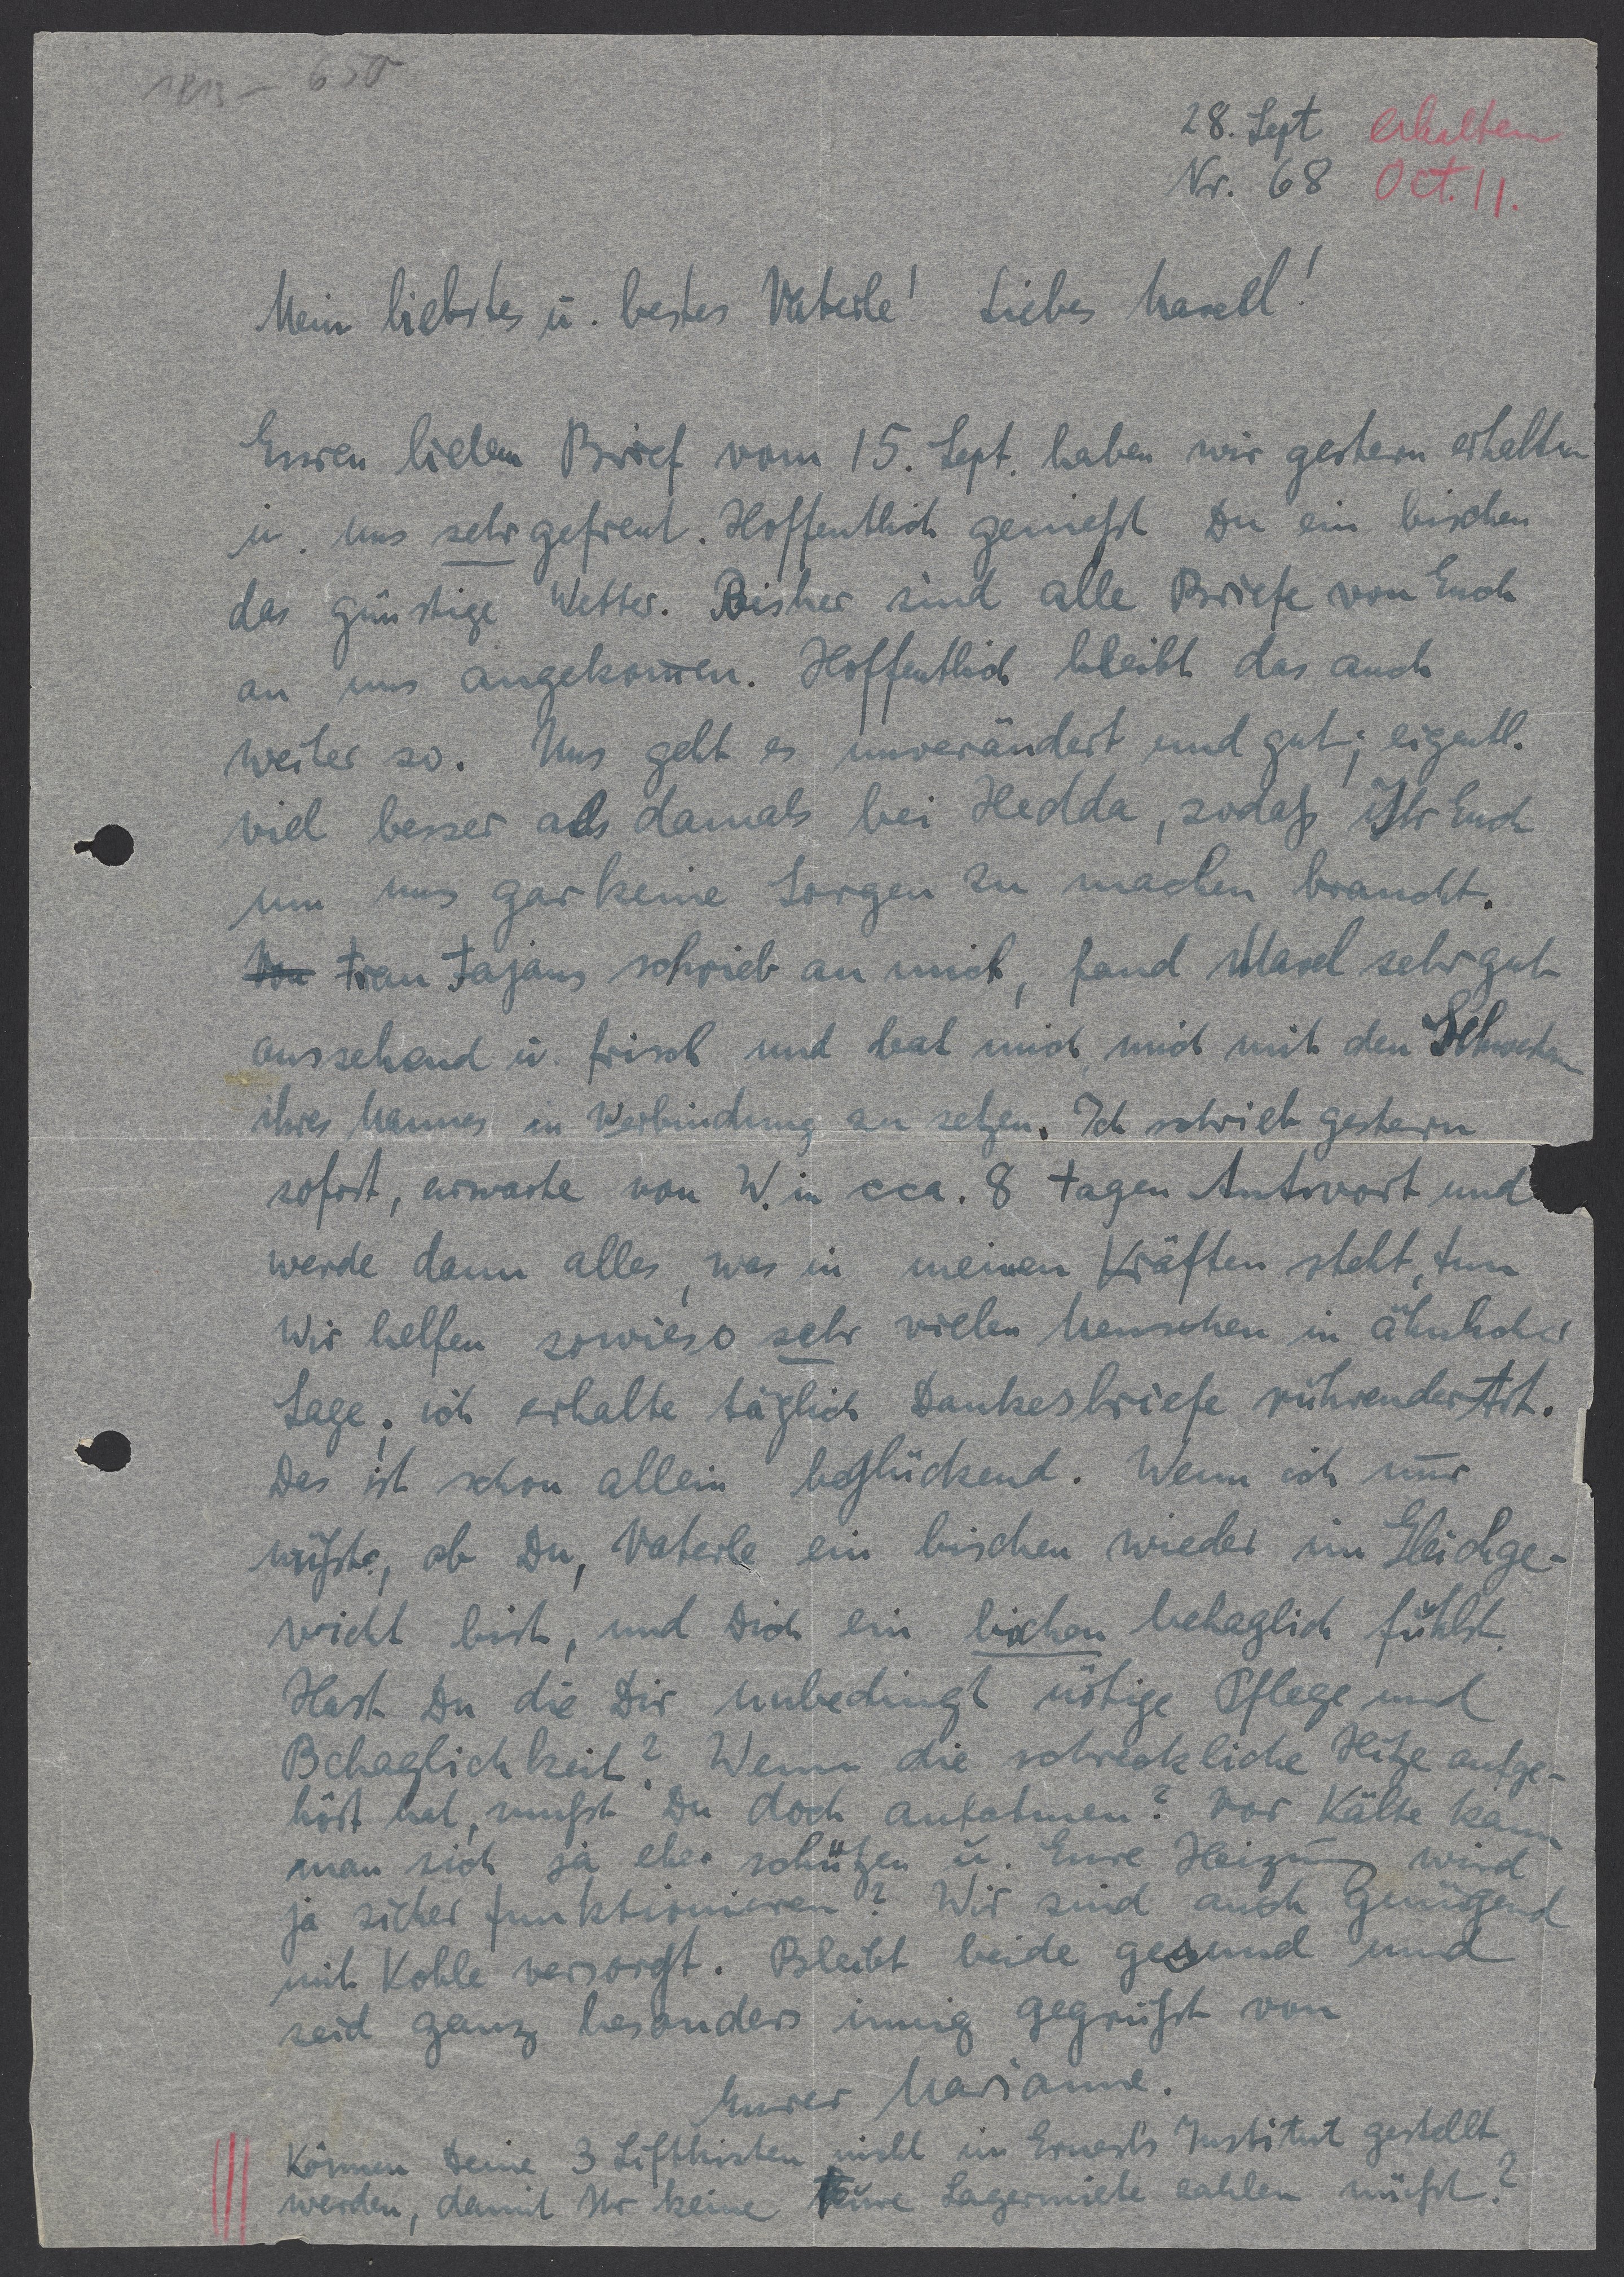 1813 - 650
28. Sept erhalten
Nr. 68 Oct. 11.
Mein liebstes u. bestes Vaterle! Liebes Maxel!
Euren lieben Brief vom 15. Sept. haben wir gestern erhalten
u. uns sehr gefreut. Hoffentlich genießt Du ein bischen
das günstige Wetter. Bisher sind alle Briefe von Euch
an uns angekom̅en. Hoffentlich bleibt das auch
weiter so. Uns geht es unverändert und gut; eigentl.
viel besser als damals bei Hedda, sodaß Ihr Euch
um uns gar keine Sorgen zu machen braucht.
Frau Fajans schrieb an mich, fand Maxel sehr gut
aussehend u. frisch und bat mich, mich mit den Schwestern
ihres Mannes in Verbindung zu setzen. Ich schrieb gestern
sofort, erwarte von W. in cca. 8 Tagen Antwort und
werde dann alles, was in meinen Kräften steht, tun
Wir helfen sowieso sehr vielen Menschen in ähnlicher
Lage; ich erhalte täglich Dankesbriefe rührender Art.
Das ist schon allein beglückend. Wenn ich nur
wüßte, ob Du, Vaterle ein bischen wieder im Gleichge-
wicht bist, und Dich ein bischen behaglich fühlst.
Hast Du die Dir unbedingt nötige Pflege und
Behaglichkeit? Wenn die schreckliche Hitze aufge-
hört hat, mußt Du doch aufatmen? Vor Kälte kann
man sich ja eher schützen u. Eure Heizung wird
ja sicher funktionieren? Wir sind auch genügend
mit Kohle versorgt. Bleibt beide gesund und
seid ganz besonders innig gegrüßt von
Eurer Marianne.
Können Deine 3 Liftkisten nicht in Ernest's Institut gestellt
werden, damit Ihr keine teure Lagermiete zahlen müßt?